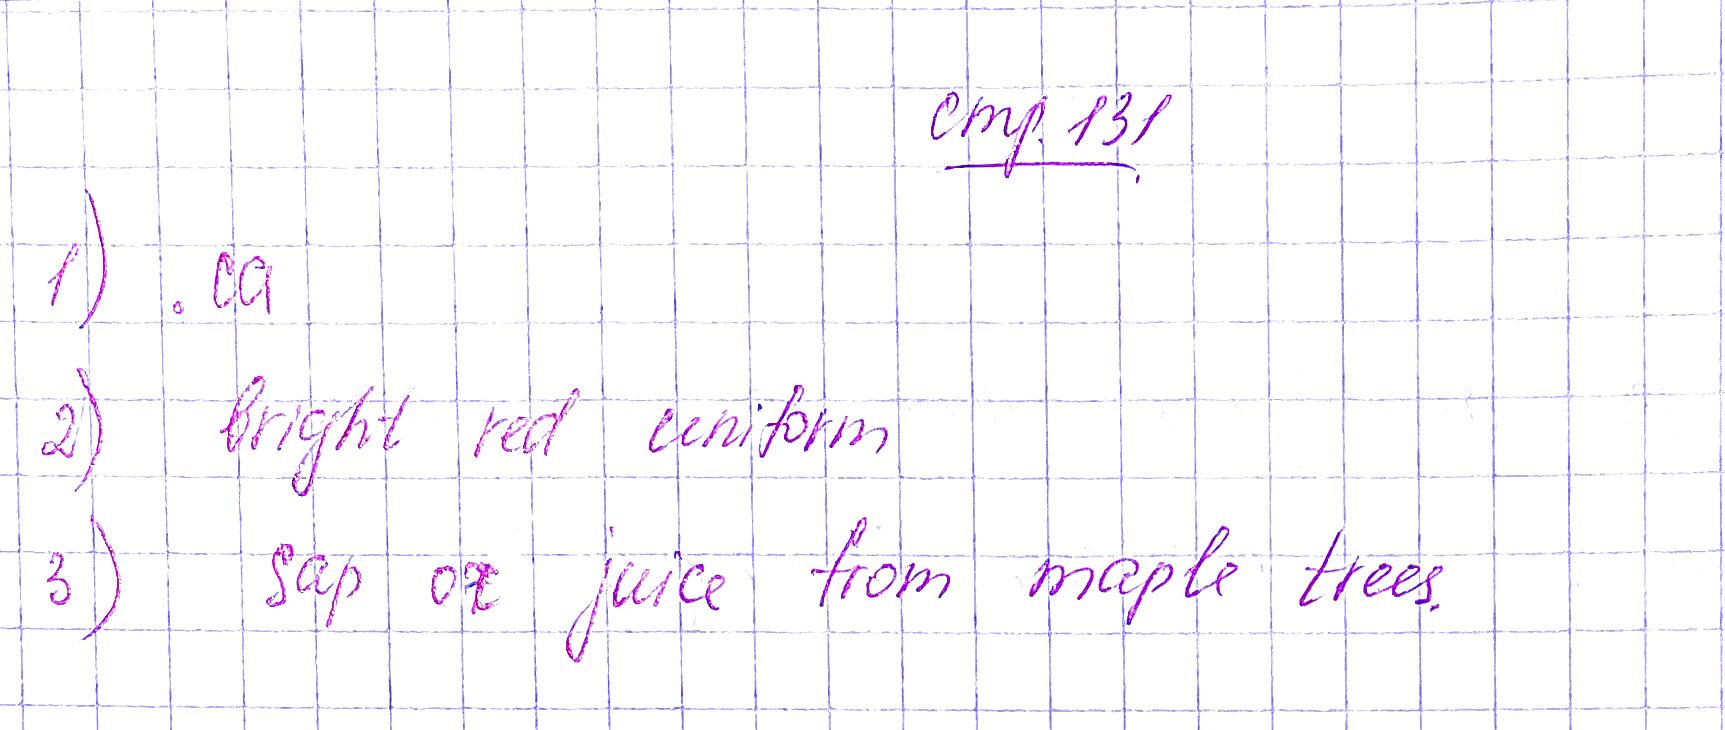 стр. 131
1) .ca
2) bright red uniform
3) sap or juice from maple trees.